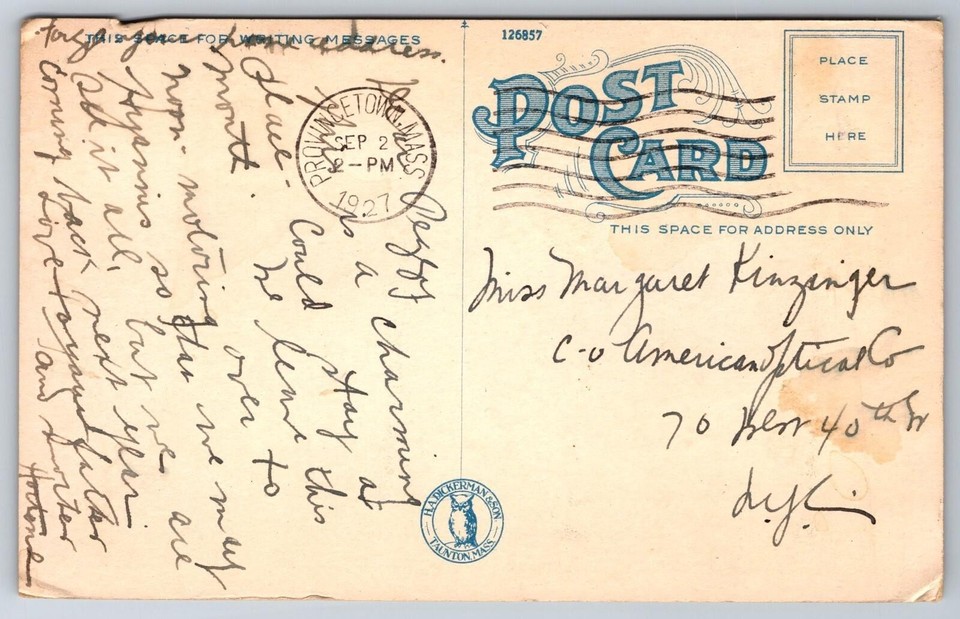 THIS SPACE FOR WRITING MESSAGES
126857
POST CARD
PLACE
STAMP
HERE
THIS SPACE FOR ADDRESS ONLY
PROVINCETOWN, MASS.
SEP 2
2-PM
1927
Peggy
is a charming
place - Could stay a
month. We leave this
noon - motoring over to
Hyannis so that we may
it all, but we are
coming back next year.
Love to your father
and sister
Hortense
home address.
Miss Margaret Kinzinger
c-o American Optical Co
70 West 40th St
N.Y.C.
H.A. DICKERMAN & SON
TAUNTON, MASS.